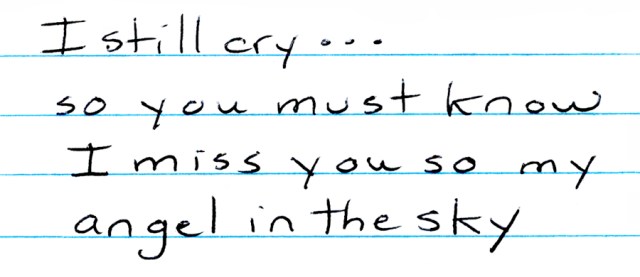 I still cry...
so you must know
I miss you so my
angel in the sky